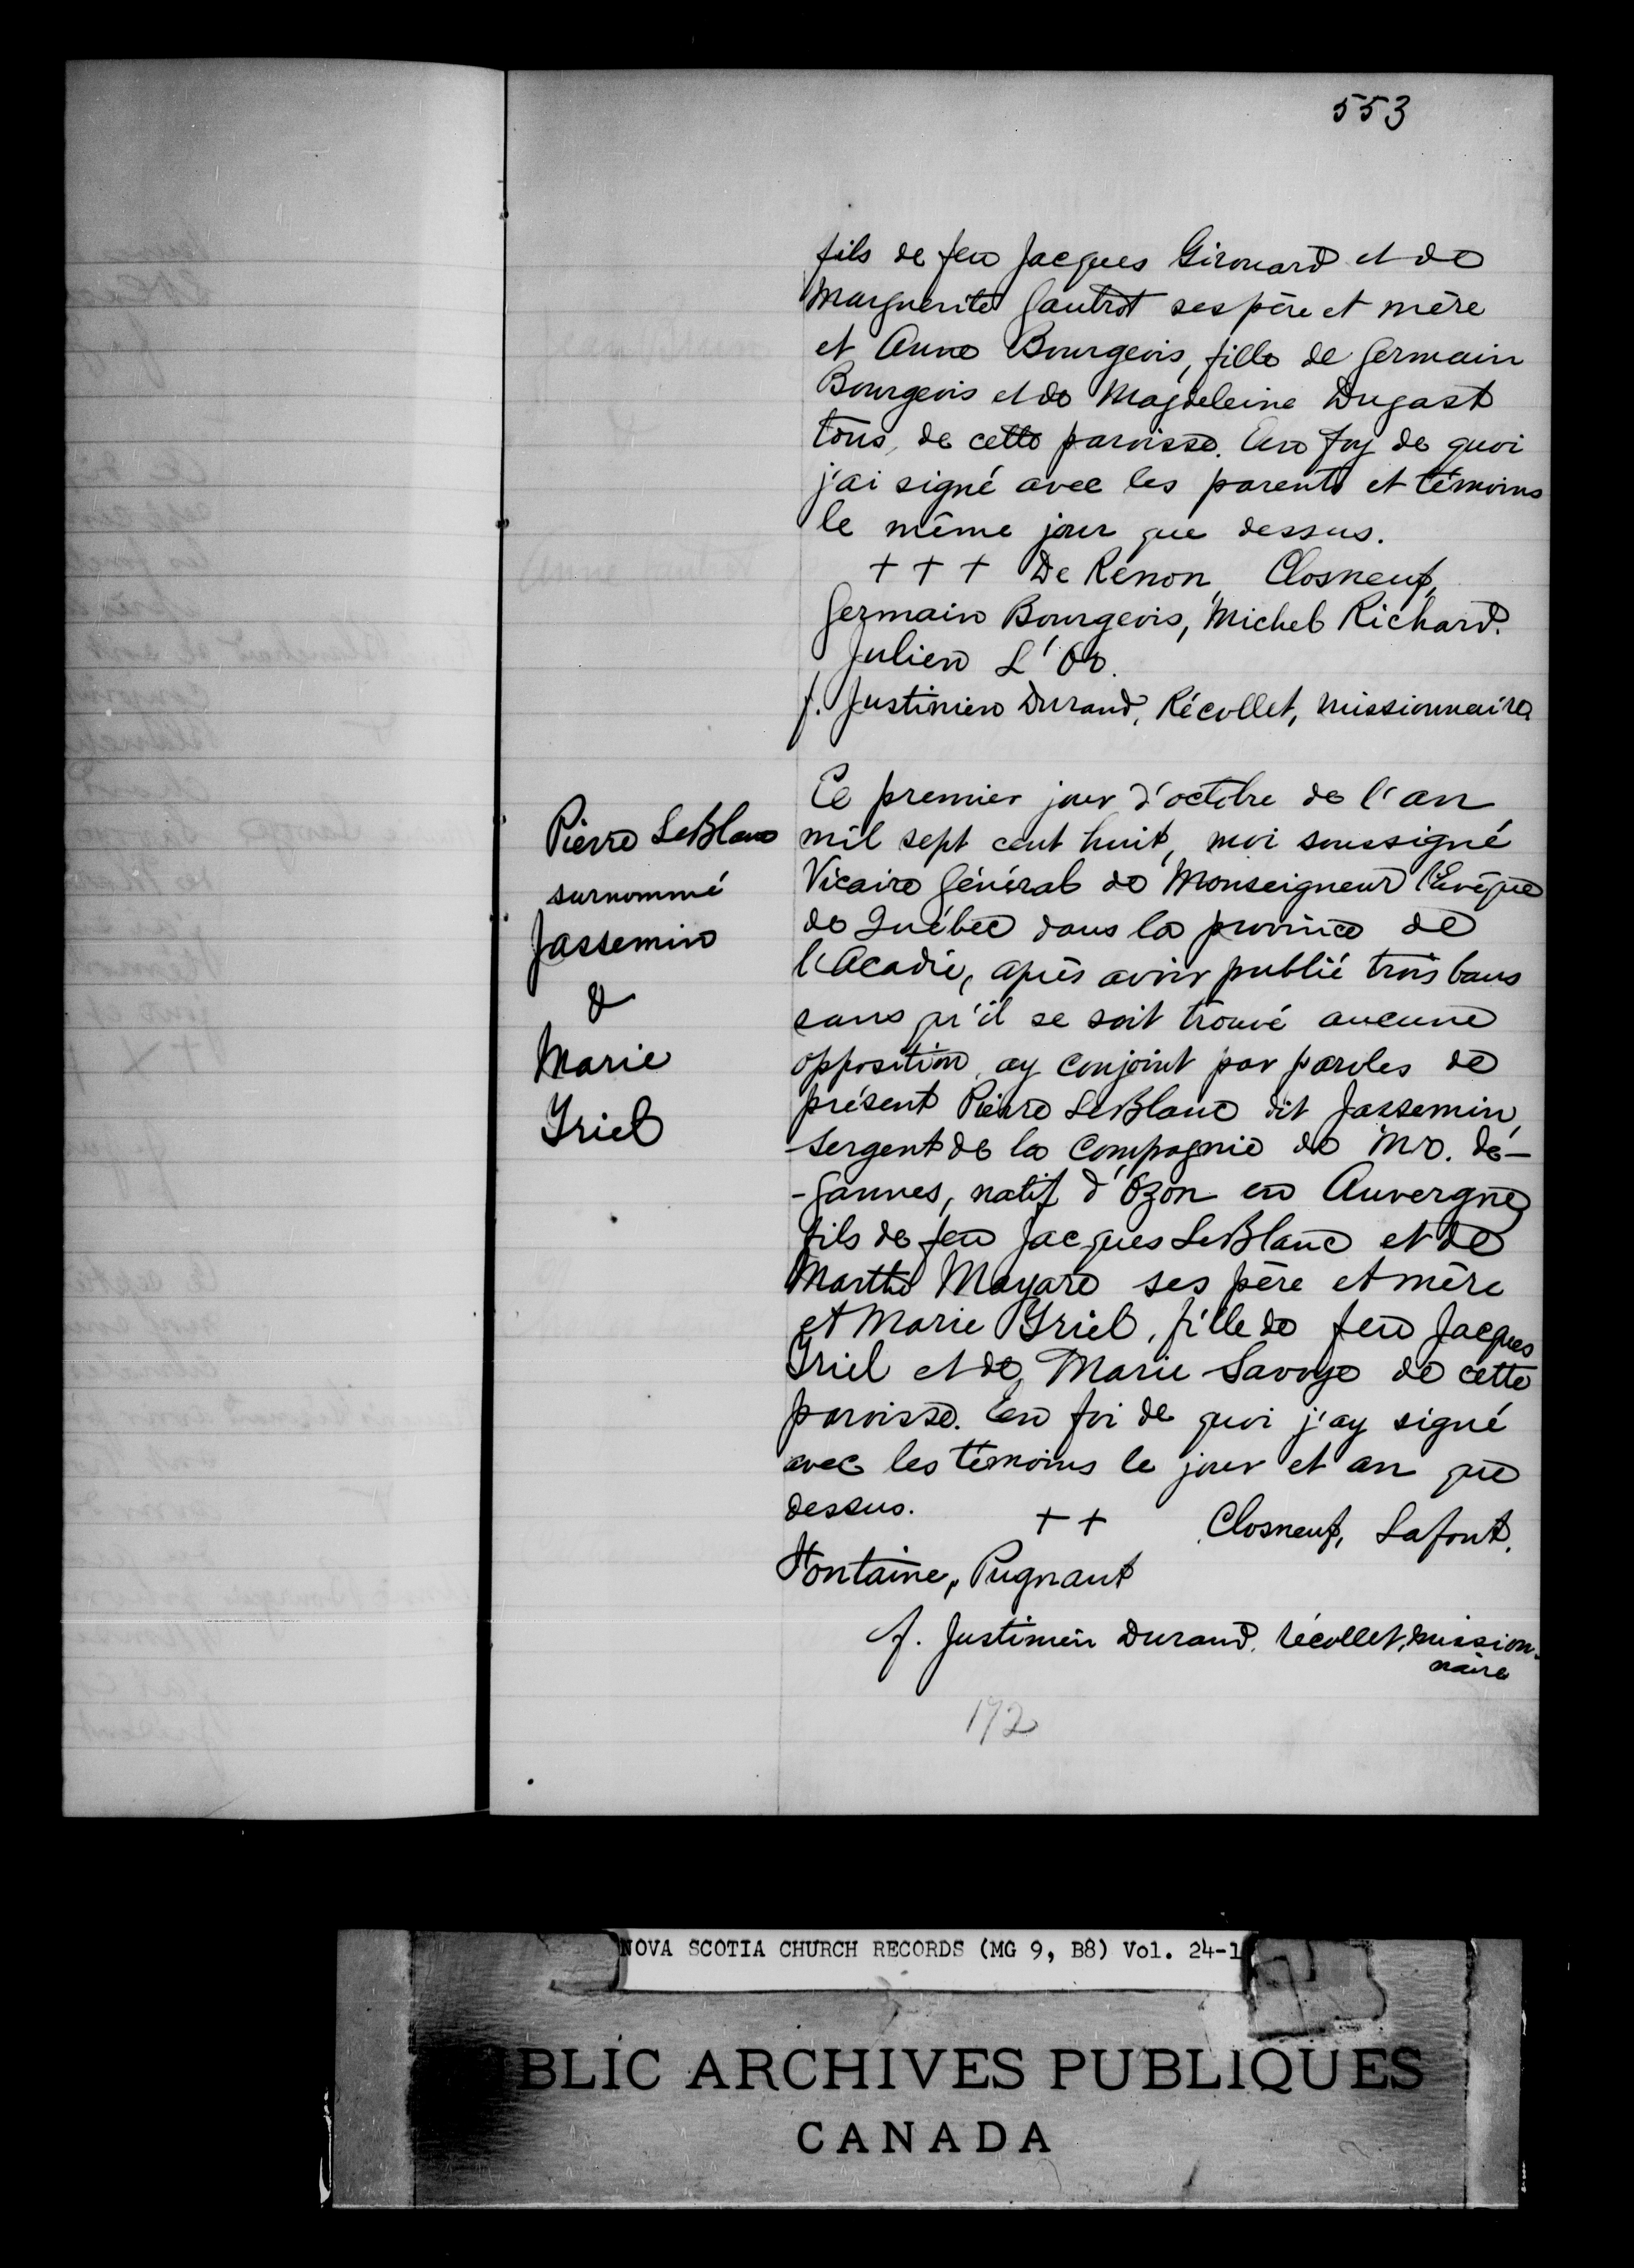 553
fils de feu Jacques Girouard et de
Marguerite Gautrot ses père et mère
et Anne Bourgeois, fille de Germain
Bourgeois et de Magdeleine Dugast
tous, de cette paroisse. En foy de quoi
j'ai signé avec les parents et témoins
le même jour que dessus.
+ + + De Renon, Closneuf,
Germain Bourgeois, Michel Richard.
Julien L'Or.
f. Justinien Durand, Récollet, missionnaire
Pierre LeBlanc
surnommé
Jassemin
&
Marie
Triel
Ce premier jour d'octobre de l'an
mil sept cent huit, moi soussigné
Vicaire Général de Monseigneur l'Evêque
de Québec dans la province de
l'Acadie, après avoir publié trois bans
sans qu'il se soit trouvé aucune
opposition, ay conjoint par paroles de
présent Pierre LeBlanc dit Jassemin,
sergent de la Compagnie de Mr. de-
-Gannes, natif d'Ozon en Auvergne
fils de feu Jacques LeBlanc et de
Marthe Mayare ses père et mère
et Marie Triel, fille de feu Jacques
Triel et de Marie Savoye de cette
paroisse. En foi de quoi j'ay signé
avec les témoins le jour et an que
dessus. + + Closneuf, Lafont,
Fontaine, Pugnant
f. Justinien Durand, récollet, mission-
naire
172
NOVA SCOTIA CHURCH RECORDS (MG 9, B8) Vol. 24-1
BLIC ARCHIVES PUBLIQUES
CANADA